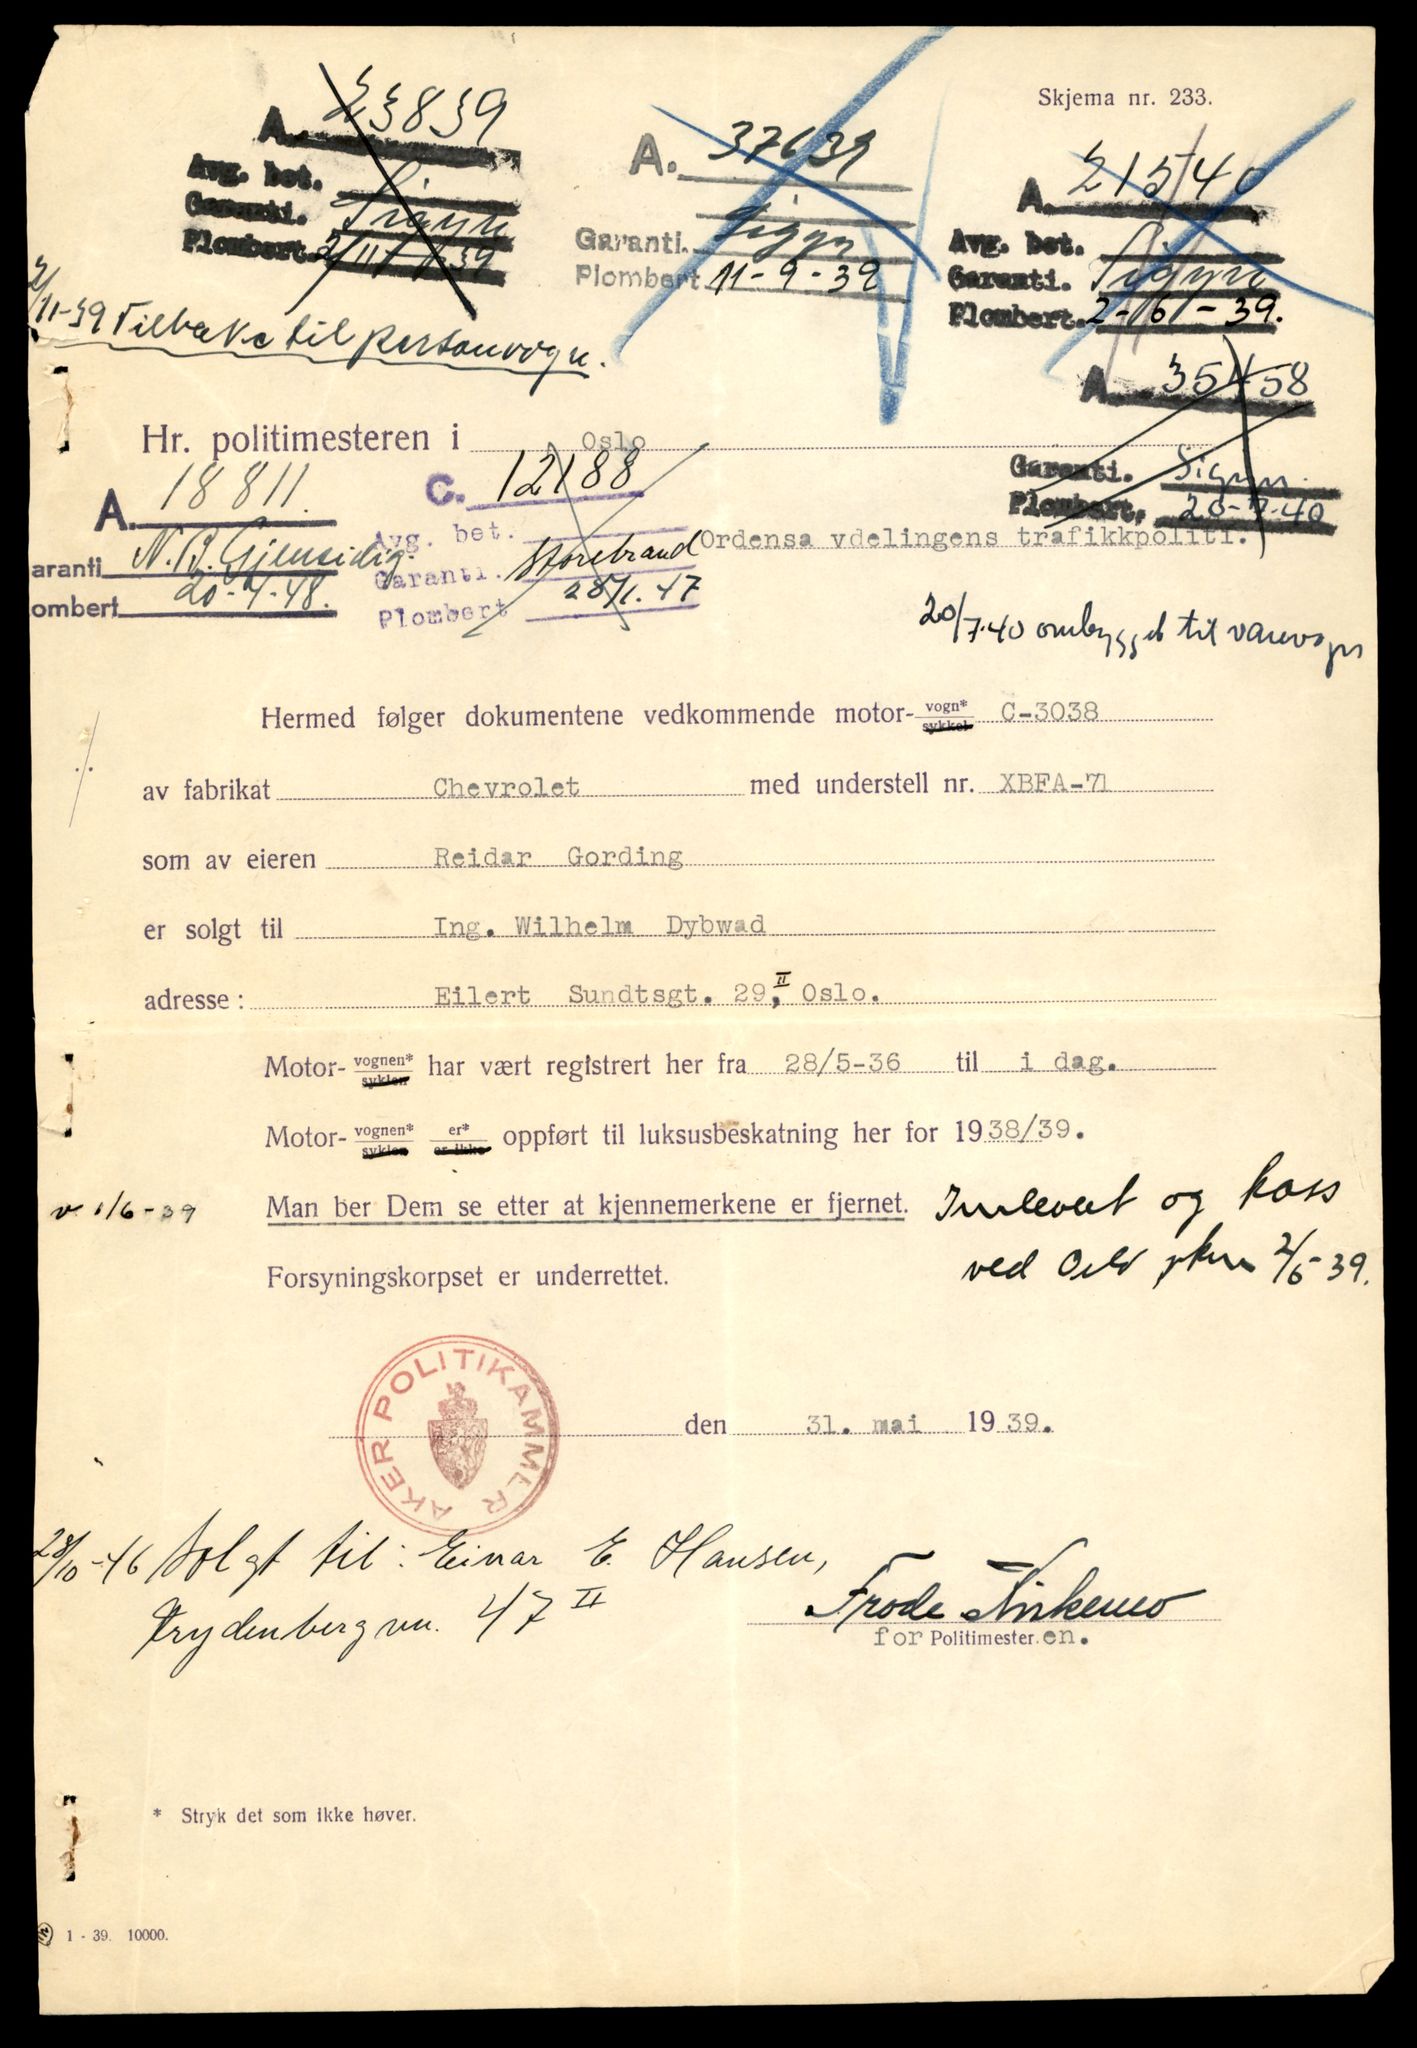 Skjema nr. 233.
A. 23839
Avg. bet.
Garanti. Sigyn
Plombert. 2/11-39
A. 37639
Garanti. Sigyn
Plombert 11-9-39
A. 21540
Avg. bet.
Garanti. Sigyn
Plombert. 2-6-39.
2/11-39 Tilbake til personvogn.
A. 35458
Garanti. Sigyn
Plombert. 20-7-40
Hr. politimesteren i Oslo
A. 18811.
aranti N.B. Gjensidig.
ombert 20-4-48.
C. 12188
Avg. bet.
Garanti. Storebrand
Plombert 28/1.47
Ordensa vdelingens trafikkpoliti.
20/7.40 ombygget til varevogn
Hermed følger dokumentene vedkommende motor- vogn* sykkel C-3038
av fabrikat Chevrolet med understell nr. XBFA-71
som av eieren Reidar Gording
er solgt til Ing. Wilhelm Dybwad
adresse: Eilert Sundtsgt. 29, II Oslo.
Motor- vognen* syklen har vært registrert her fra 28/5-36 til i dag.
Motor- vognen* syklen er* er ikke oppført til luksusbeskatning her for 1938/39.
v. 1/6-39
Man ber Dem se etter at kjennemerkene er fjernet.
Innlevert og kass
ved 2/6-39.
Forsyningskorpset er underrettet.
AKER POLITIKAMMER
den 31. mai 1939.
28/10-46 Solgt til: Einar E. Hansen,
Frydenbergvn. 47 II
Frode
for Politimester.en.
* Stryk det som ikke høver.
1 - 39. 10000.